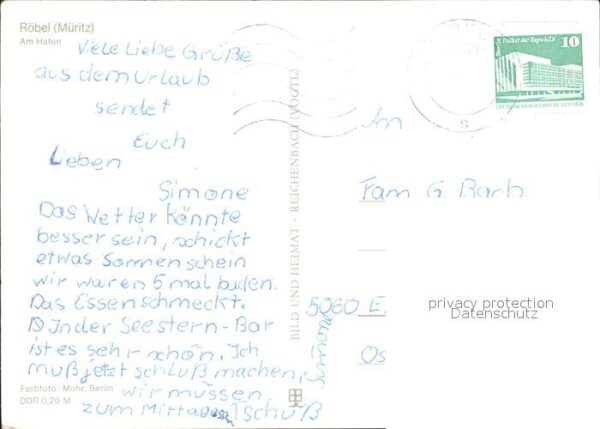 Röbel (Müritz)
Am Hafen
Viele Liebe Grüße
aus dem Urlaub
sendet
Euch
Lieben
Simone
Das Wetter könnte
besser sein, schickt
etwas Sonnenschein
wir waren 5 mal baden.
Das Essen schmeckt.
In der Seestern-Bar
ist es sehr schön, Ich
muß jetzt schluß machen,
wir müssen
zum Mittag Tschüß
Simone
Farbfoto: Mohr, Berlin
DDR 0,20 M
BILD UND HEIMAT · REICHENBACH (VOGTL)
Berlin Palast der Republik
10
DEUTSCHE DEMOKRATISCHE REPUBLIK
An
Fam G. Bach
5060 E
privacy protection
Datenschutz
Os